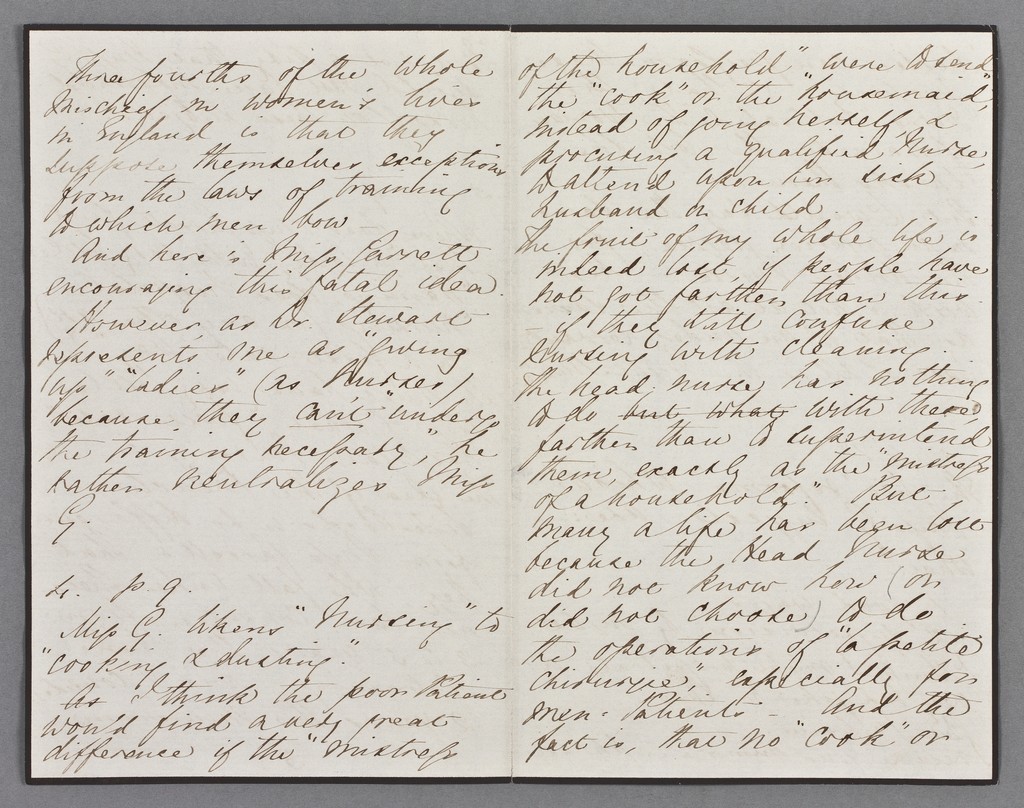 Three fourths of the whole
mischief in women's lives
in England is that they
suppose themselves exceptions
from the laws of training
to which men bow
And here is Miss Garrett
encouraging this fatal idea.
However, as Dr. Stewart
represents me as "giving
up" "ladies" (as Nurses)
because they can't "undergo
the training necessary," he
rather neutralizes Miss
G.
p. 9.
Miss G. likens "Nursing" to
"cooking & dusting."
As I think the poor Patient
would find a very great
difference if the "mistress
of the household" were to send
the "cook" or the "housemaid,"
instead of going herself, &
procuring a qualified Nurse,
to attend upon her sick
husband or child
The fruit of my whole life is
indeed lost, if people have
not got farther than this.
- if they still confuse
nursing with cleaning.
The head nurse has nothing
to do but what with these,
farther than to superintend
them, exactly as the "mistress
of a household." But
many a life has been lost
because the Head Nurse
did not know how (or
did not choose) to do
the operations of "la petite
chirurgie," especially for
men-Patients - And the
fact is, that no "cook" or